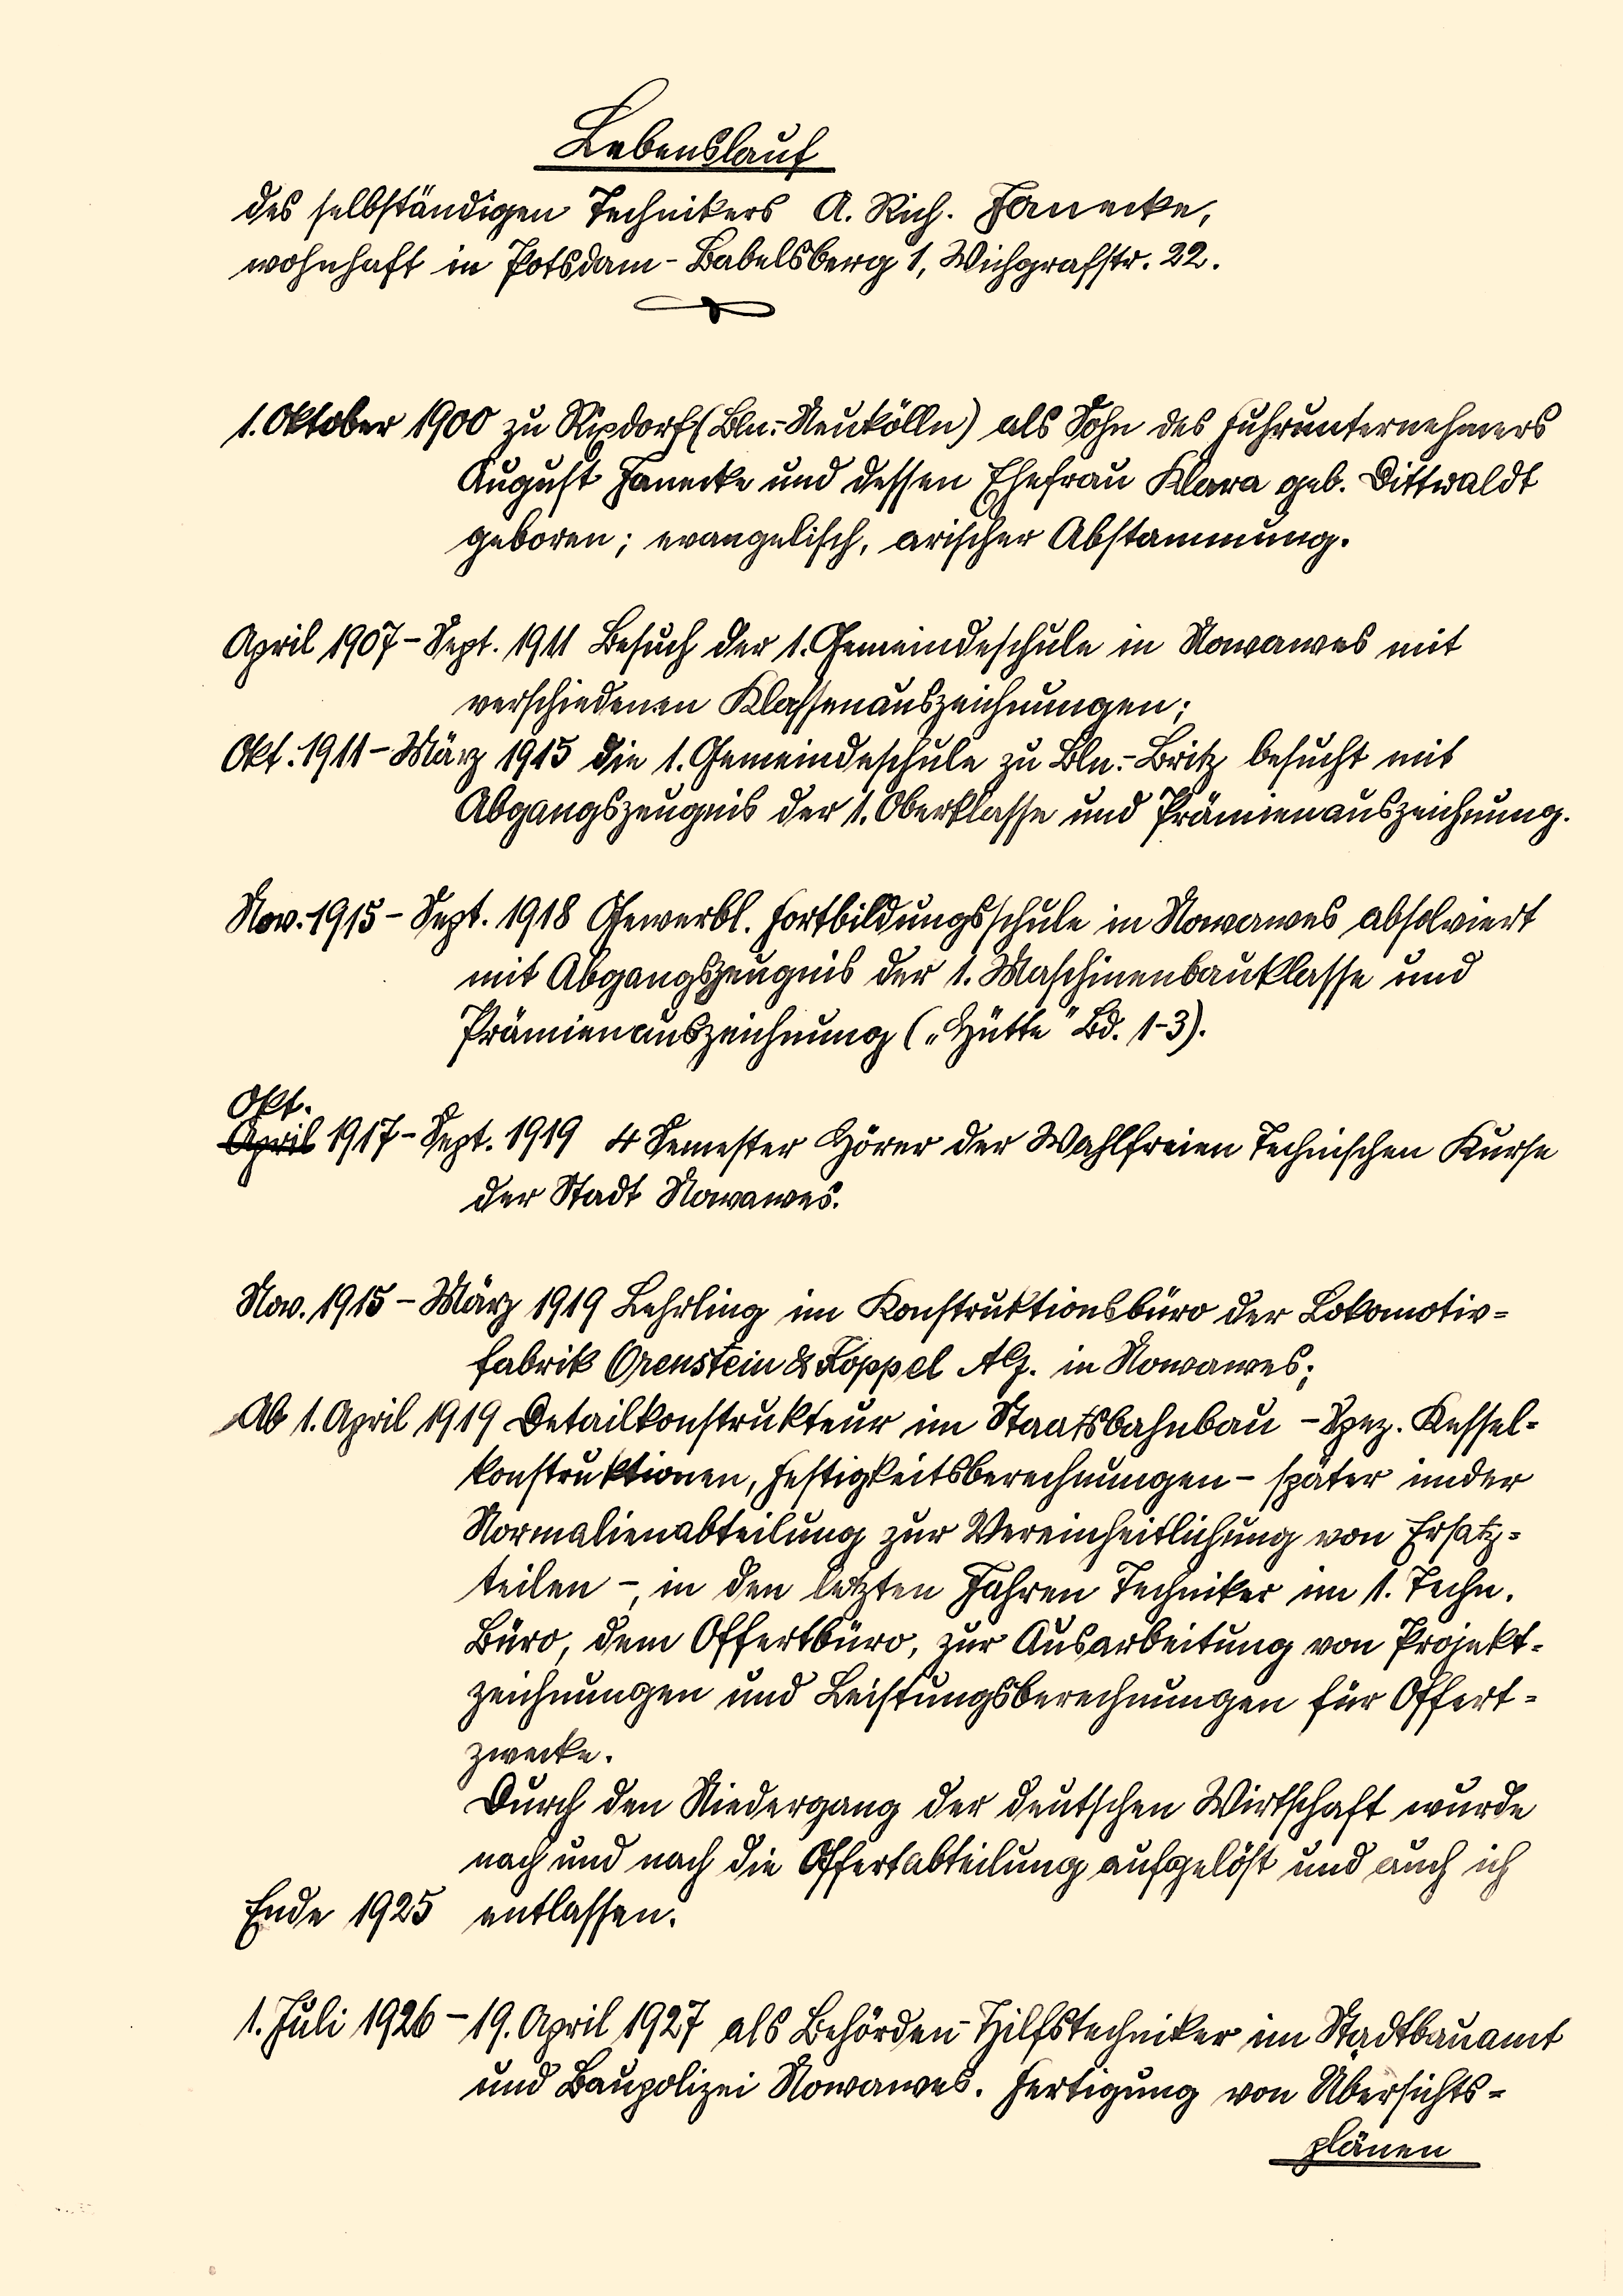 Lebenslauf
des selbständigen Technikers A. Rich. Janecke,
wohnhaft in Potsdam-Babelsberg 1, Wichgrafstr. 22.
1. Oktober 1900 zu Rixdorf (Bln.-Neukölln) als Sohn des Fuhrunternehmers
August Janecke und dessen Ehefrau Klara geb. Dittwaldt
geboren; evangelisch, arischer Abstammung.
April 1907 - Sept. 1911 Besuch der 1. Gemeindeschule in Nowawes mit
verschiedenen Klassenauszeichnungen;
Okt. 1911 - März 1915 die 1. Gemeindeschule zu Bln.-Britz besucht mit
Abgangszeugnis der 1. Oberklasse und Prämienauszeichnung.
Nov. 1915 - Sept. 1918 Gewerbl. Fortbildungsschule in Nowawes absolviert
mit Abgangszeugnis der 1. Maschinenbauklasse und
Prämienauszeichnung („Hütte" Bd. 1-3).
Okt.
April 1917 - Sept. 1919 4 Semester Hörer der Wahlfreien Technischen Kurse
der Stadt Nowawes.
Nov. 1915 - März 1919 Lehrling im Konstruktionsbüro der Lokomotiv-
fabrik Orenstein & Koppel AG. in Nowawes;
Ab 1. April 1919 Detailkonstrukteur im Staatsbahnbau - Spez. Kessel-
konstruktionen, Festigkeitsberechnungen - später in der
Normalienabteilung zur Vereinheitlichung von Ersatz-
teilen -, in den letzten Jahren Techniker im 1. Techn.
Büro, dem Offertbüro, zur Ausarbeitung von Projekt-
zeichnungen und Leistungsberechnungen für Offert-
zwecke.
Durch den Niedergang der deutschen Wirtschaft wurde
nach und nach die Offertabteilung aufgelöst und auch ich
Ende 1925 entlassen.
1. Juli 1926 - 19. April 1927 als Behörden-Hilfstechniker im Stadtbauamt
und Baupolizei Nowawes. Fertigung von Übersichts-
plänen